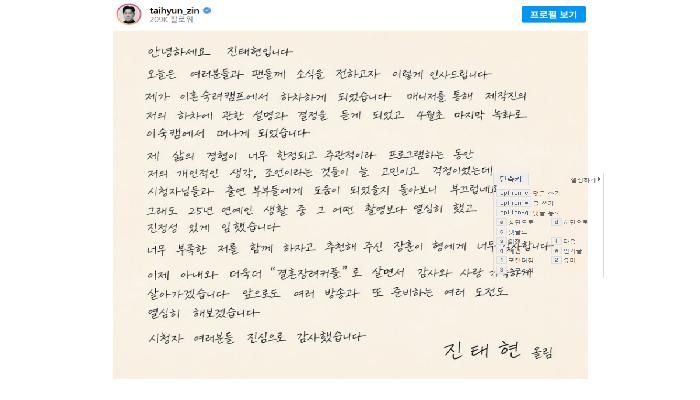 taihyun_zin
209K 팔로워
프로필 보기
안녕하세요 진태현입니다
오늘은 여러분들과 팬들께 소식을 전하고자 이렇게 인사드립니다
제가 이혼숙려캠프에서 하차하게 되었습니다 매니저를 통해 제작진의
저의 하차에 관한 설명과 결정을 듣게 되었고 4월초 마지막 녹화로
이숙캠에서 떠나게 되었습니다
제 삶의 경험이 너무 한정되고 주관적이라 프로그램하는 동안
저의 개인적인 생각, 조언이라는 것들이 늘 고민이고 걱정이었는데
시청자님들과 출연 부부들에게 도움이 되었을지 돌아보니 부끄럽네
그래도 25년 연예인 생활 중 그 어떤 촬영보다 열심히 했고
진정성 있게 임했습니다
너무 부족한 저를 함께 하자고 추천해 주신 장훈이 형에게 너무
이제 아내와 더욱더 "결혼장려커플"로 살면서 감사와 사랑
살아가겠습니다 앞으로도 여러 방송과 또 준비하는 여러 도전도
열심히 해보겠습니다
시청자 여러분들 진심으로 감사했습니다
진태현 올림
단축키